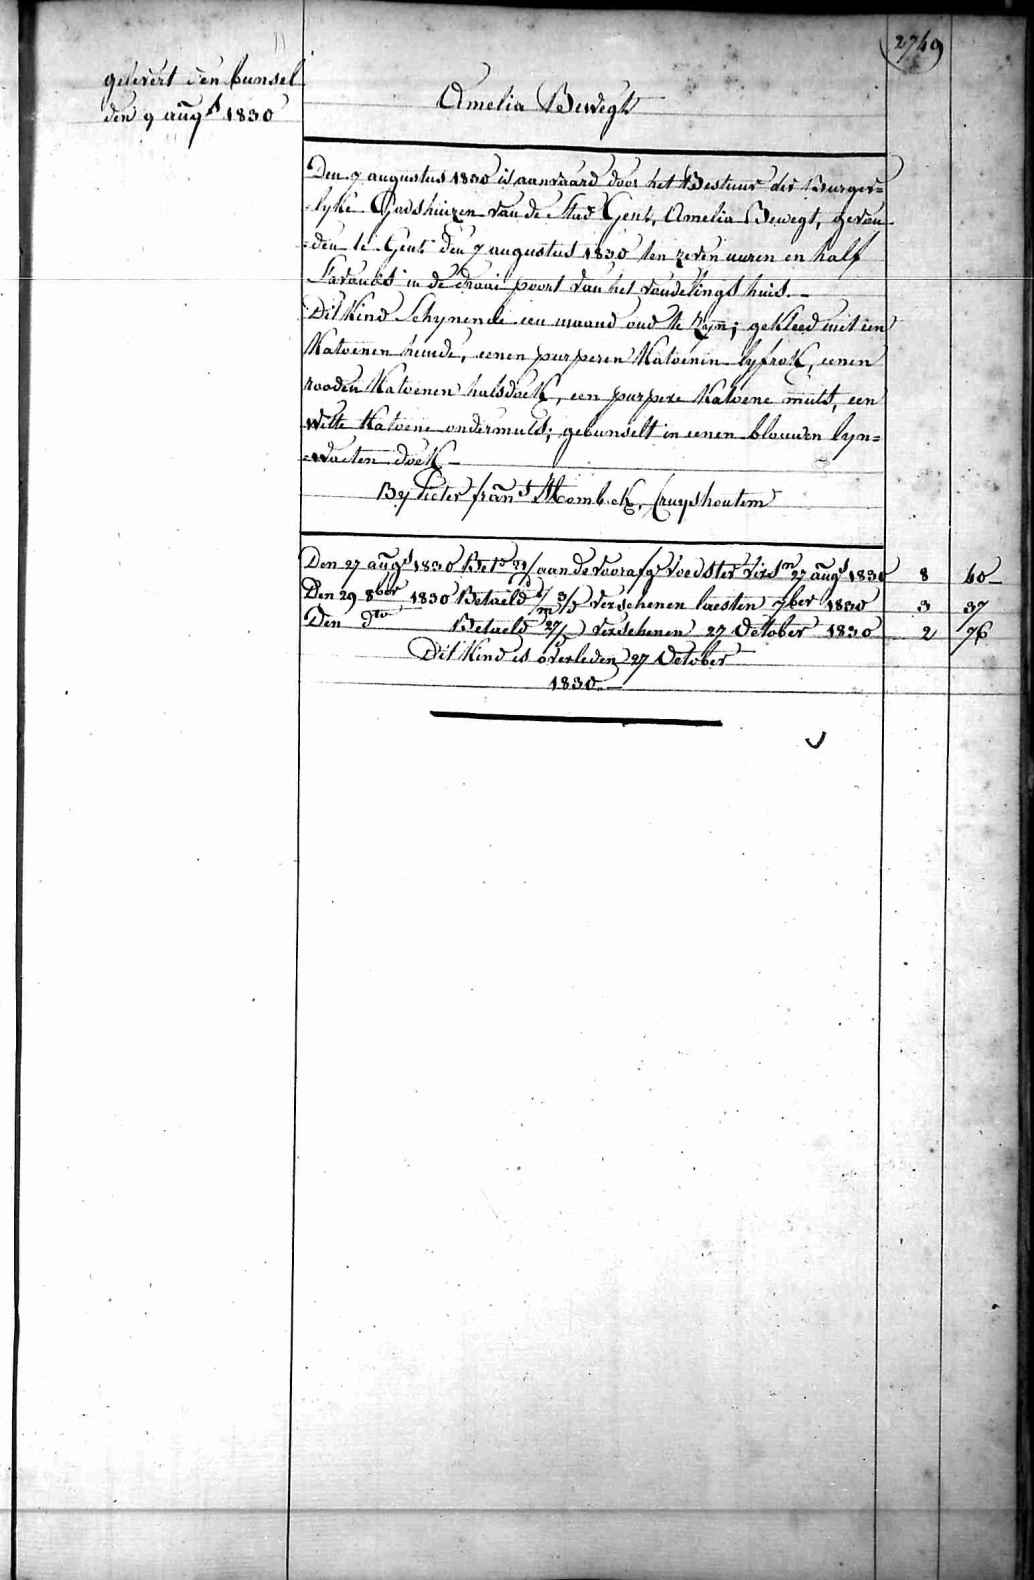 2749
gelevert den bunsel
den 9 augs 1830
Amelia Bewegt
Den 7 augustus 1830 is aanvaard door het Bestuur der Burger=
=lyke Godshuizen van de Stad Gent, Amelia Bewegt, gevon
=den te Gent den 7 augustus 1830 ten zeven uuren en half
s'avonds in de draai poort van het vondelings huis.-
Dit Kind Schynende een maand oud te zyn; gekleed met een
Katoenen hemde, eenen purperen Katoenen lyfrok, eenen
rooden Katoenen halsdoek, een purpere Katoene muts, een
witte Katoene ondermuts; gebunselt in eenen blauwen lyn=
=waeten doek-
By Pieter frans Hombek, Cruyshoutem
Den 27 augs 1830 Bet. aan de voorafg voedster vers 27 augs 1830 8 60
Den 29 8ber 1830 Betaeld m/3 verschenen laesten 7ber 1830 3 37
Den dto Betaeld 27/ verschenen 27 October 1830 2 76
Dit Kind is overleden 27 October
1830.-